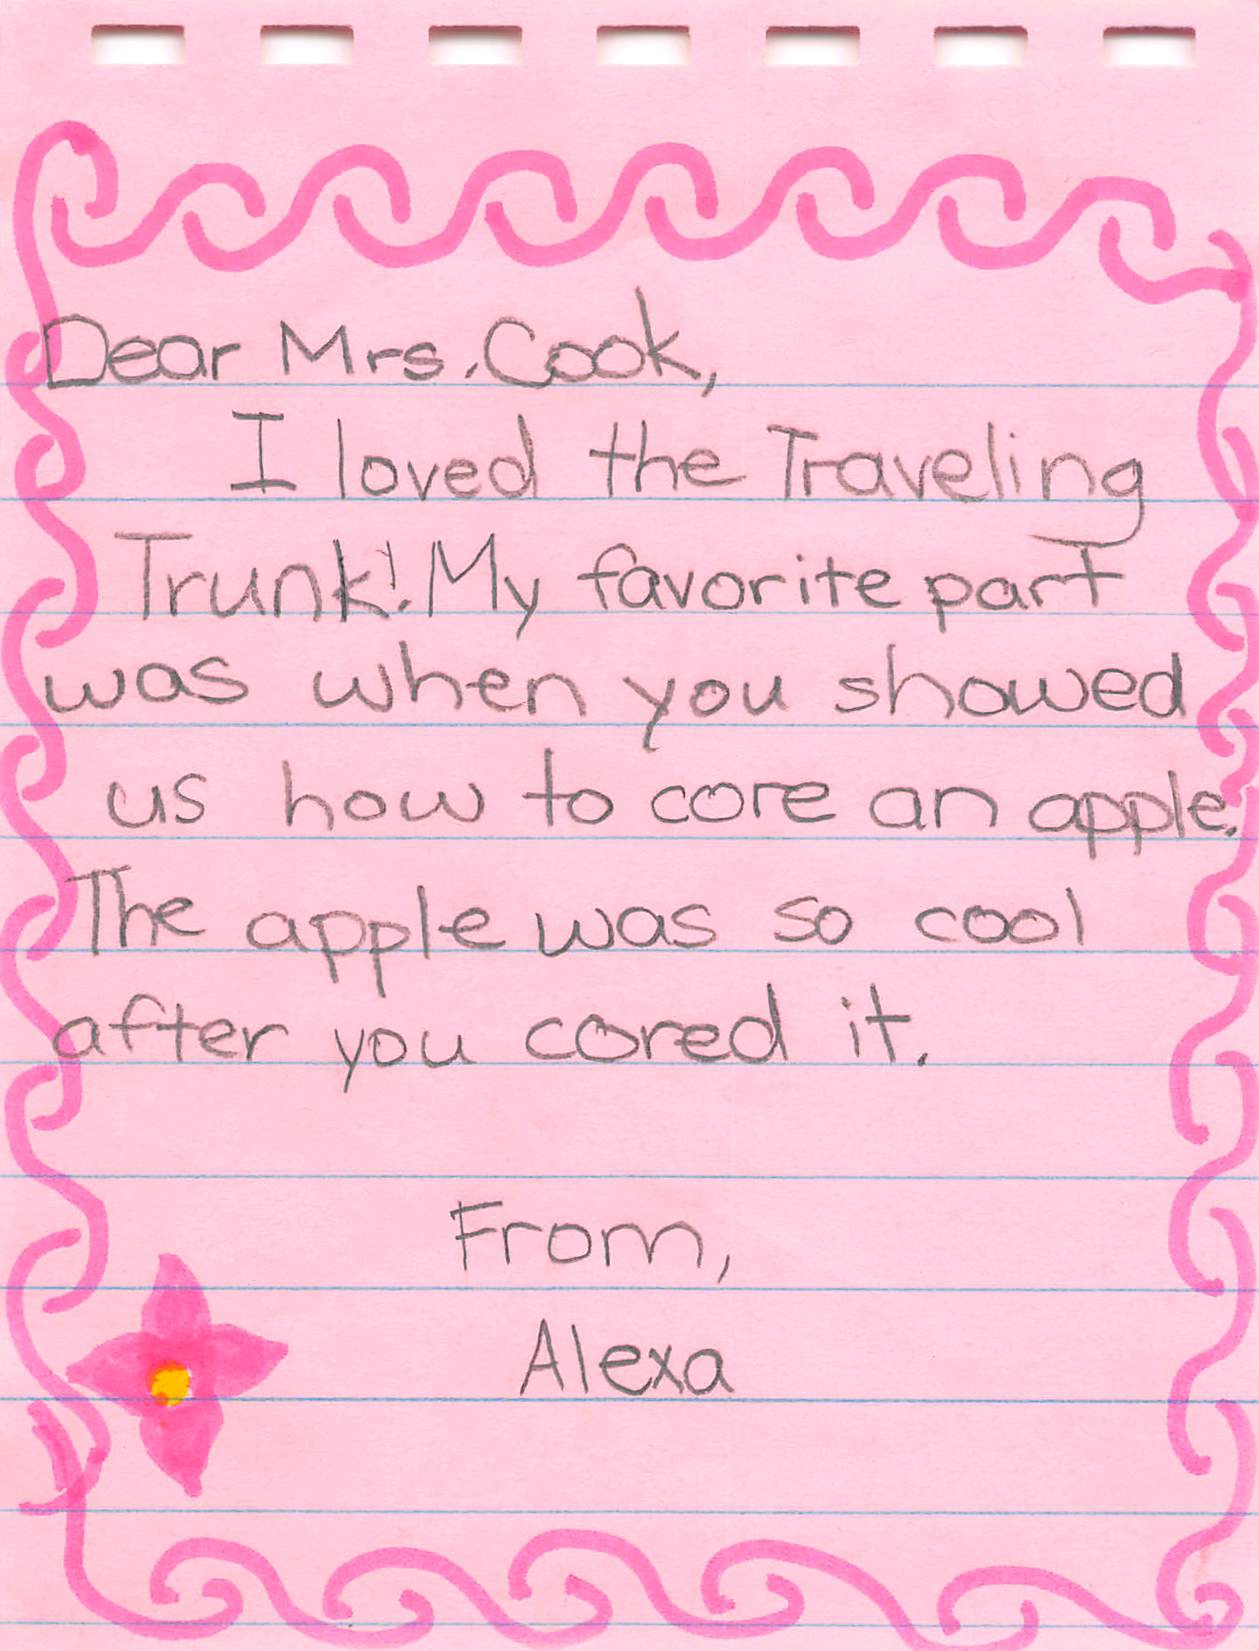 Dear Mrs. Cook,
I loved the Traveling
Trunk! My favorite part
was when you showed
us how to core an apple.
The apple was so cool
after you cored it.
From,
Alexa